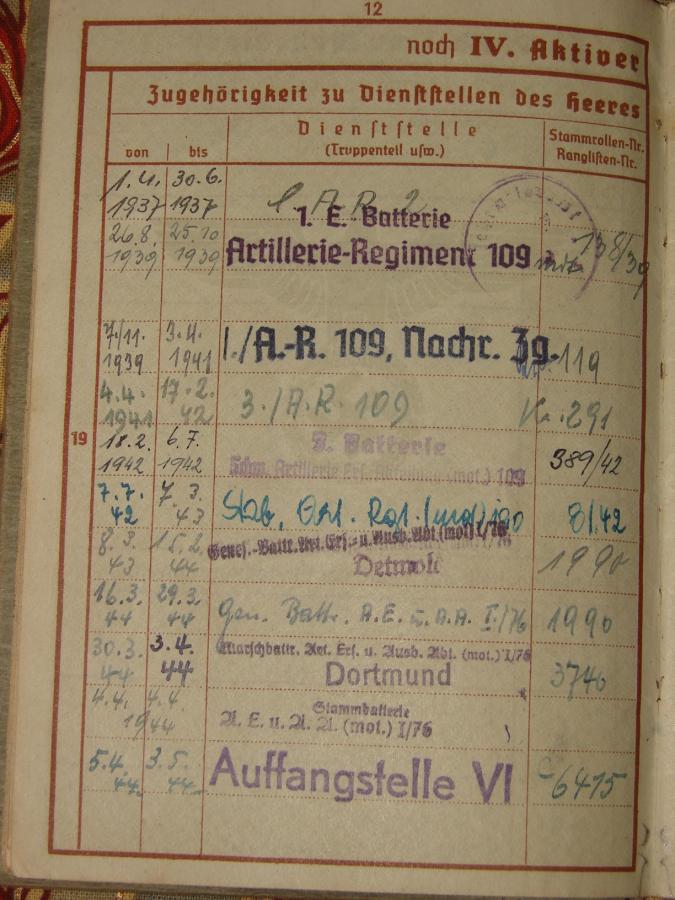 12
noch IV. Aktiver
Zugehörigkeit zu Dienststellen des Heeres
von bis
Dienststelle
(Truppenteil usw.)
Stammrollen-Nr.
Ranglisten-Nr.
1.4. 30.6.
1937 1937
A. R. 2
1. E. Batterie
26.8. 25.10
1939 1939
Artillerie-Regiment 109
138/39
7/11. 3.4.
1939 1941
I./A.-R. 109, Nachr. Zg.
119
4.4. 17.2.
1941 42
3./A.R. 109
291
19
18.2. 6.7.
1942 1942
Batterie
Schw. Artillerie Ers. Abteilung (mot.) 109
389/42
7.7. 7.3.
42 43
Stab, Art. Rgt. (mot)
8/42
8.3. 15.2.
43 44
Genes.-Battr. Art. Ers.- u. Ausb. Abt. (mot) I/76
Detmold
1990
16.3. 29.3.
44 44
Gen. Battr. A.E. u. A.A. I/76
1990
30.3. 3.4.
44 44
Marschbattr. Art. Ers. u. Ausb. Abt. (mot.) I/76
Dortmund
3740
4.4. 4.4.
1944
Stammbatterie
A. E. u. A. A. (mot.) I/76
5.4. 3.5.
44. 44.
Auffangstelle VI
6415